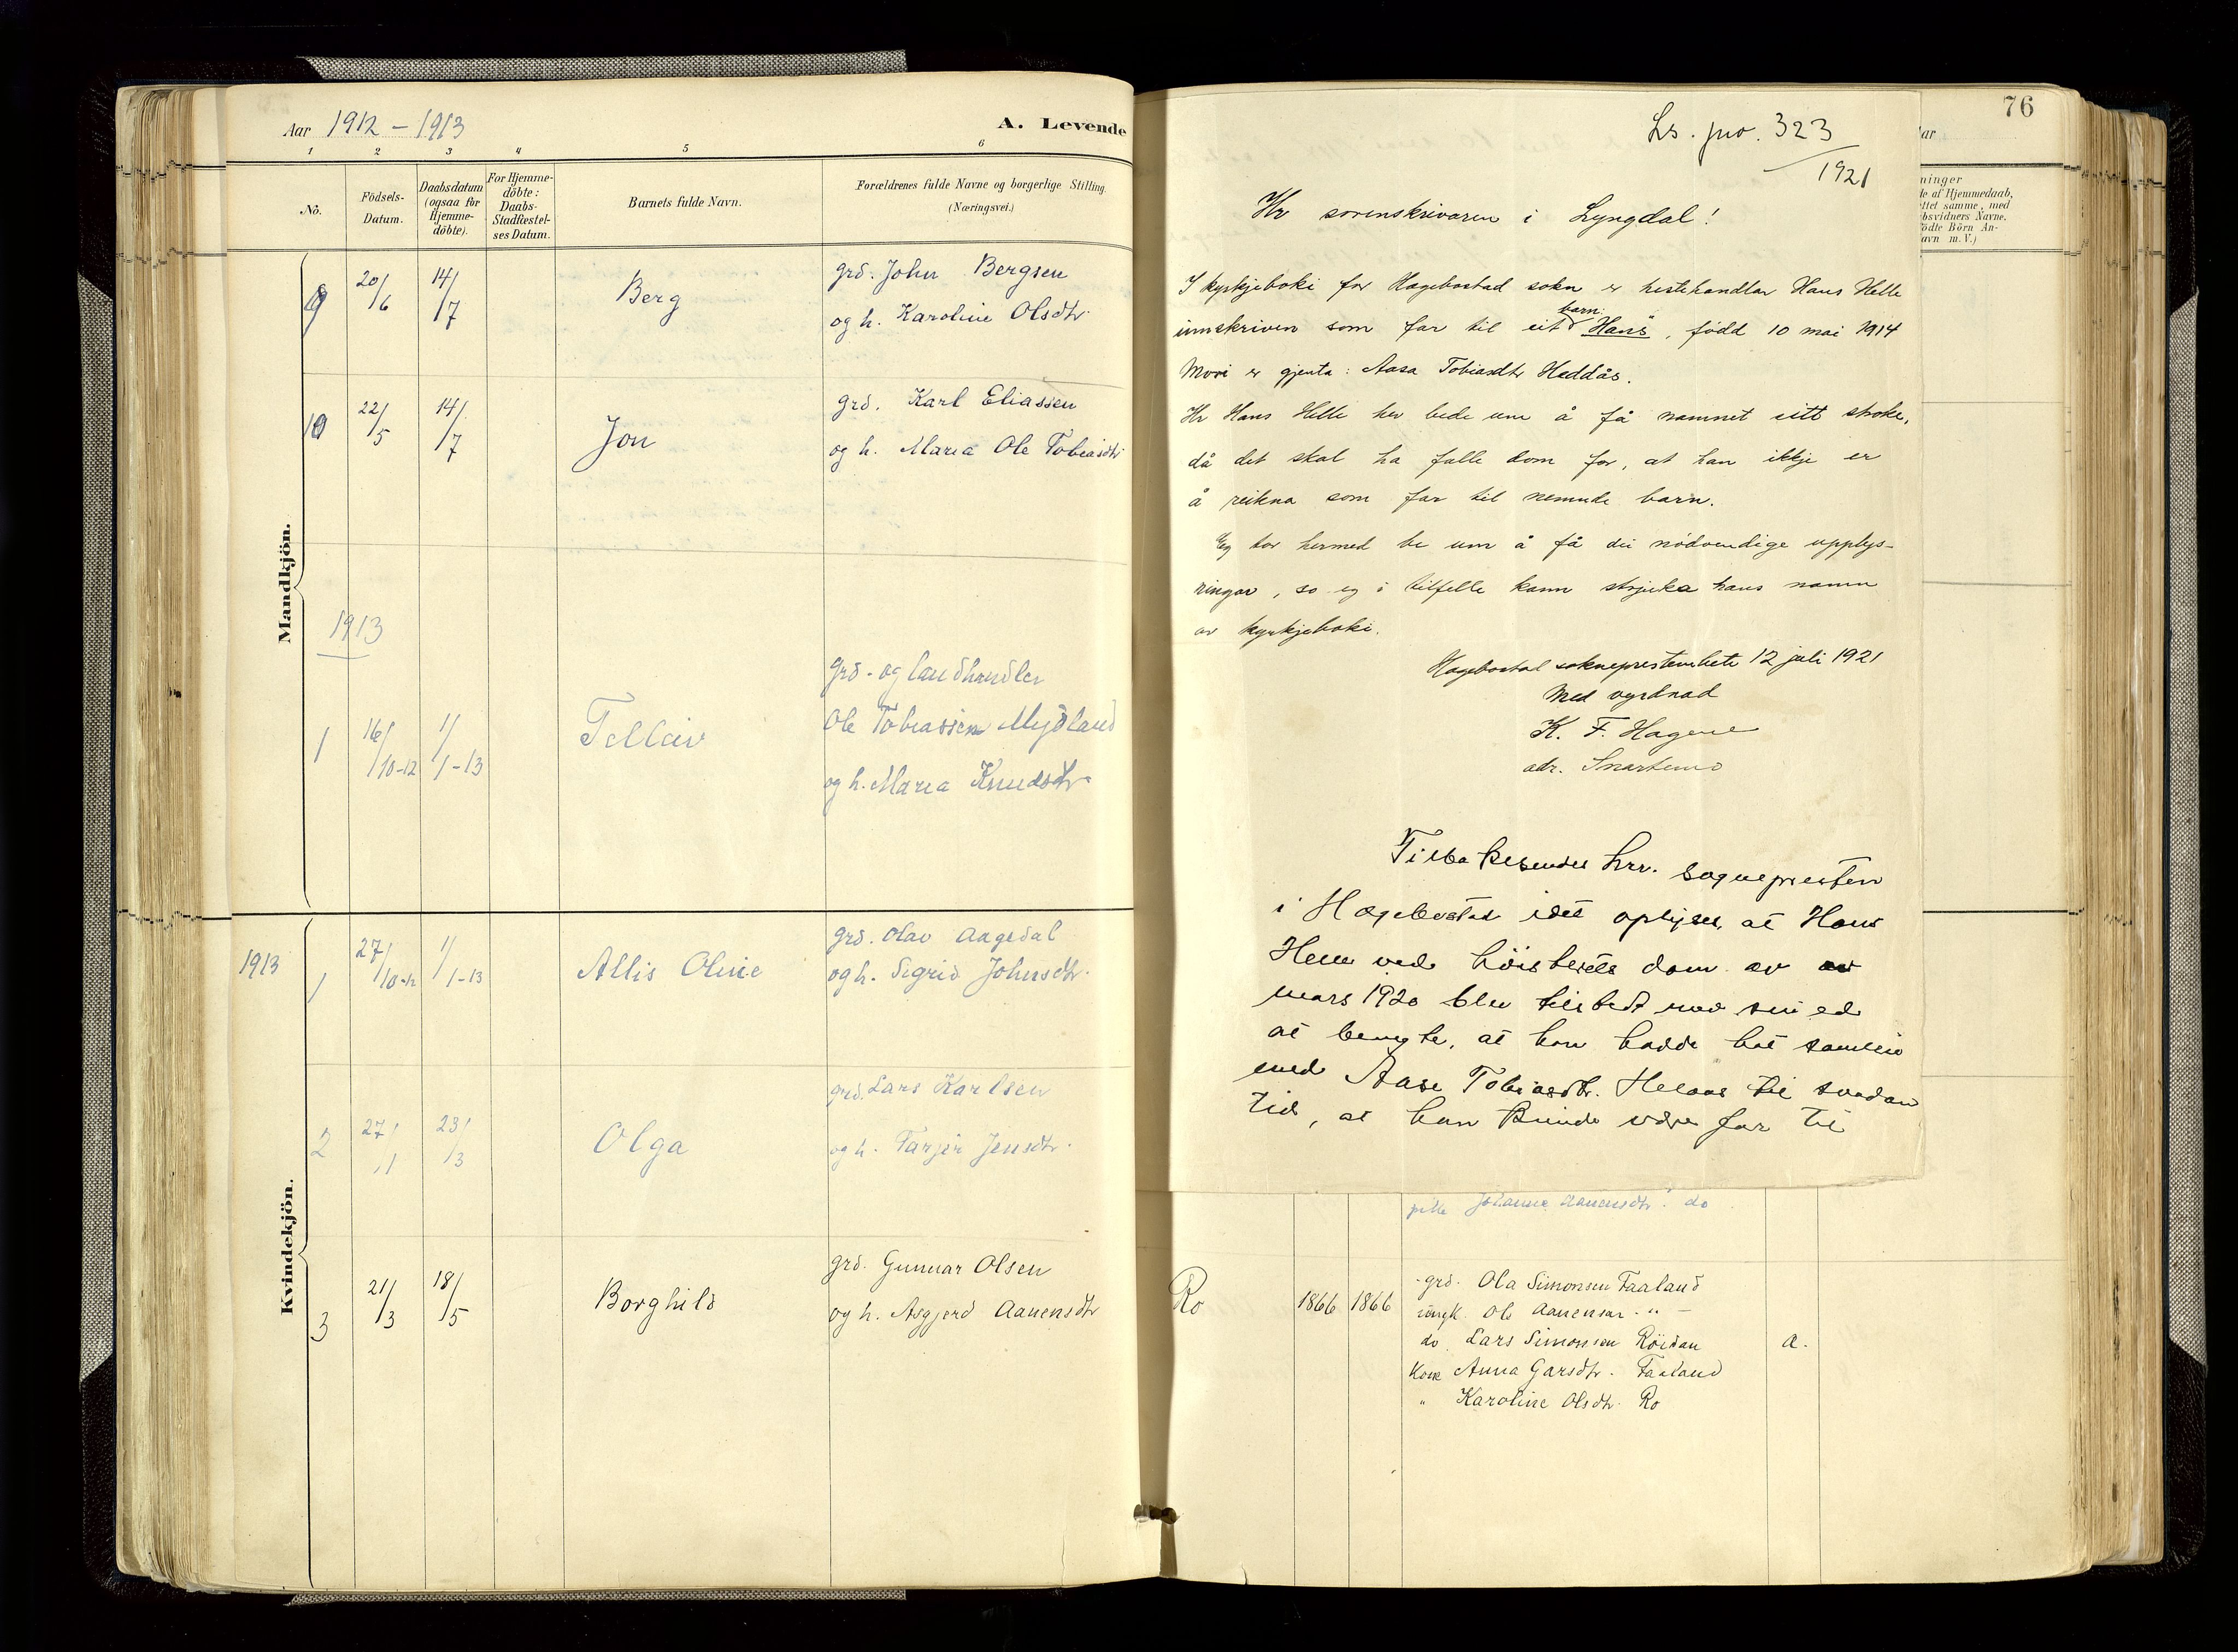 Aar 1912 – 1913
A. Levende
1 2 3 4 5 6
No.
Fødsels-
Datum.
Daabsdatum
(ogsaa for
Hjemme-
döbte).
For Hjemme-
döbte:
Daabs-
Stadfæstel-
ses Datum.
Barnets fulde Navn.
Forældrenes fulde Navne og borgerlige Stilling.
(Næringsvei.)
Mandkjön.
9 20/6 14/7 Berg grd. John Bergsen
og h. Karoline Olsdtr.
10 22/5 14/7 Jon grd. Karl Eliassen
og h. Maria Ole Tobiasdtr
1913
1 16/10-12 1/1-13 Telleiv grd- og landhandler
Ole Tobiassen Mydland
og h. Maria Knudsdtr.
Kvindekjön.
1913 1 27/10-12 1/1-13 Allis Oline grd. Olav Aagedal
og h. Sigrid Johnsdtr.
2 27/1 23/3 Olga grd. Lars Karlsen
og h. Tarjer Jensdtr.
3 21/3 18/5 Borghild grd. Gunnar Olsen
og h. Asgjerd Aanensdtr
76
Ls. jno. 323
/1921
Hr sorenskrivaren i Lyngdal!
I kyrkjeboki for Hægebostad sokn er hestehandlar Hans Helle
barn
innskriven som far til eit Hans, född 10 mai 1914
Mori er gjenta: Aasa Tobiasdtr Heddås.
Hr Hans Helle hev bede um å få namnet sitt stroke,
då det skal ha falle dom for, at han ikkje er
å reikna som far til nemnde barn.
Eg tor hermed be um å få dei nödvendige upplys-
ningar, so eg i tilfelle kann strjuka hans namn
av kyrkjeboki.
Hægebostad sokneprestembete 12 juli 1921
Med vyrdnad
K. F. Hagene
adr. Snartemo
Tilbakesendes hrr. sognepresten
i Hægebostad idet oplyses, at Hans
Helle ved höiesterets dom av
mars 1920 blev tilstedt med sin ed
at benegte, at han hadde hat samleie
med Aase Tobiasdtr. Hedaas til saadan
tid, at han kunde være far til
ar
ninger
le af Hjemmedaab,
ttet samme, med
bsvidners Navne.
födte Börn An-
avn m. V.)
pike Johanne Aanensdtr. do
Ro 1866 1866 grd. Ola Simonsen Faaland
ungk. Ole Aanensen – " –
do. Lars Simonsen Röidan a.
Kone Anna Garsdtr. Faaland
" Karoline Olsdtr. Ro